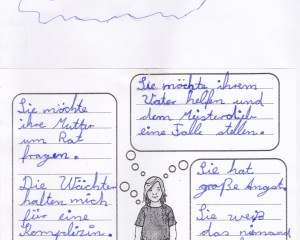 Sie möchte
ihre Mutter
um Rat
fragen.
Die Wächter
halten mich
für eine
Komplizin.
Sie möchte ihrem
Vater helfen und
dem Meisterdieb
eine Falle stellen.
Sie hat
große Angst.
Sie weiß
das niemand